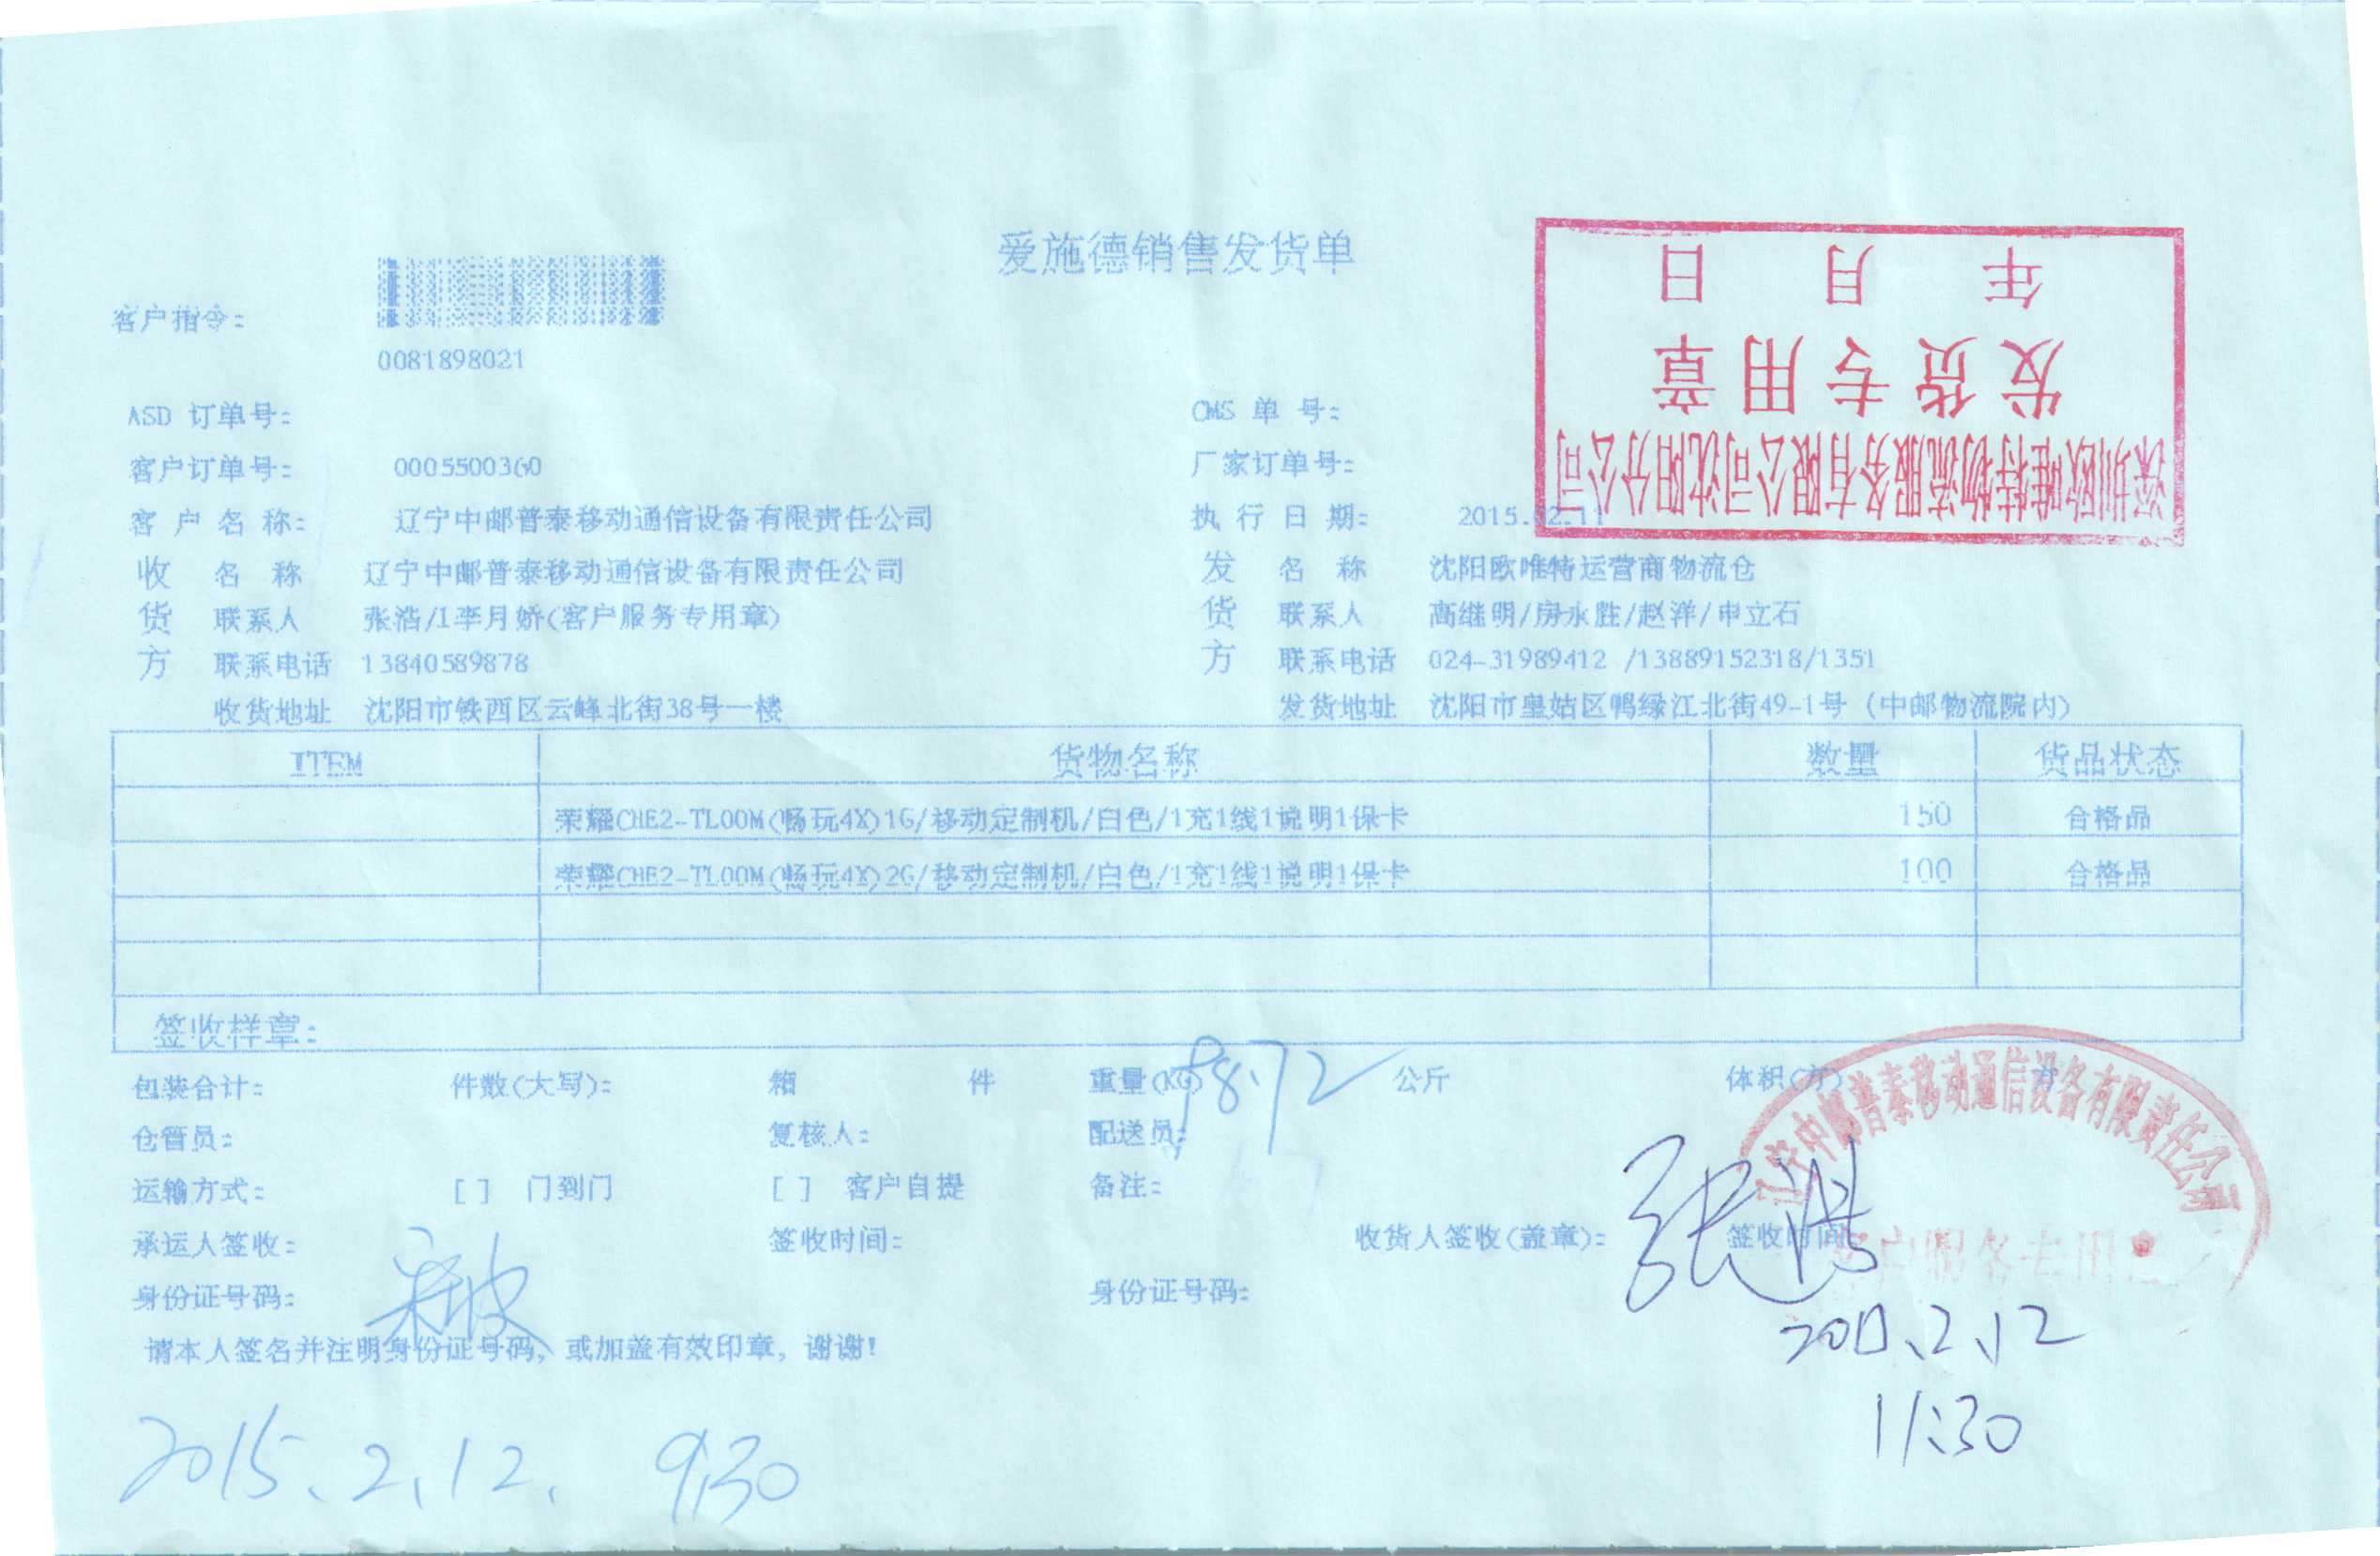 爱施德销售发货单
年 月 日
发货专用章
深圳欧唯特物流服务有限公司沈阳分公司
客户指令:
0081898021
ASD 订单号: CMS 单 号:
客户订单号: 0005500360 厂家订单号:
客 户 名 称: 辽宁中邮普泰移动通信设备有限责任公司 执 行 日 期: 2015.02.11
收 名 称 辽宁中邮普泰移动通信设备有限责任公司 发 名 称 沈阳欧唯特运营商物流仓
货 联系人 张浩/1李月娇(客户服务专用章) 货 联系人 高继明/房永胜/赵洋/申立石
方 联系电话 13840589878 方 联系电话 024-31989412 /13889152318/1351
收货地址 沈阳市铁西区云峰北街38号一楼 发货地址 沈阳市皇姑区鸭绿江北街49-1号 (中邮物流院内)
ITEM 货物名称 数量 货品状态
荣耀CHE2-TL00M(畅玩4X)1G/移动定制机/白色/1充1线1说明1保卡 150 合格品
荣耀CHE2-TL00M(畅玩4X)2G/移动定制机/白色/1充1线1说明1保卡 100 合格品
签收样章:
包装合计: 件数(大写): 箱 件 重量(KG) 98.72 公斤 体积(方) 方
仓管员: 复核人: 配送员:
运输方式: [ ] 门到门 [ ] 客户自提 备注:
承运人签收: 签收时间: 收货人签收(盖章): 张浩 签收时间
身份证号码: 身份证号码:
请本人签名并注明身份证号码、或加盖有效印章, 谢谢!
辽宁中邮普泰移动通信设备有限责任公司
客户服务专用章
2.12
11:30
2015.2.12. 9:30